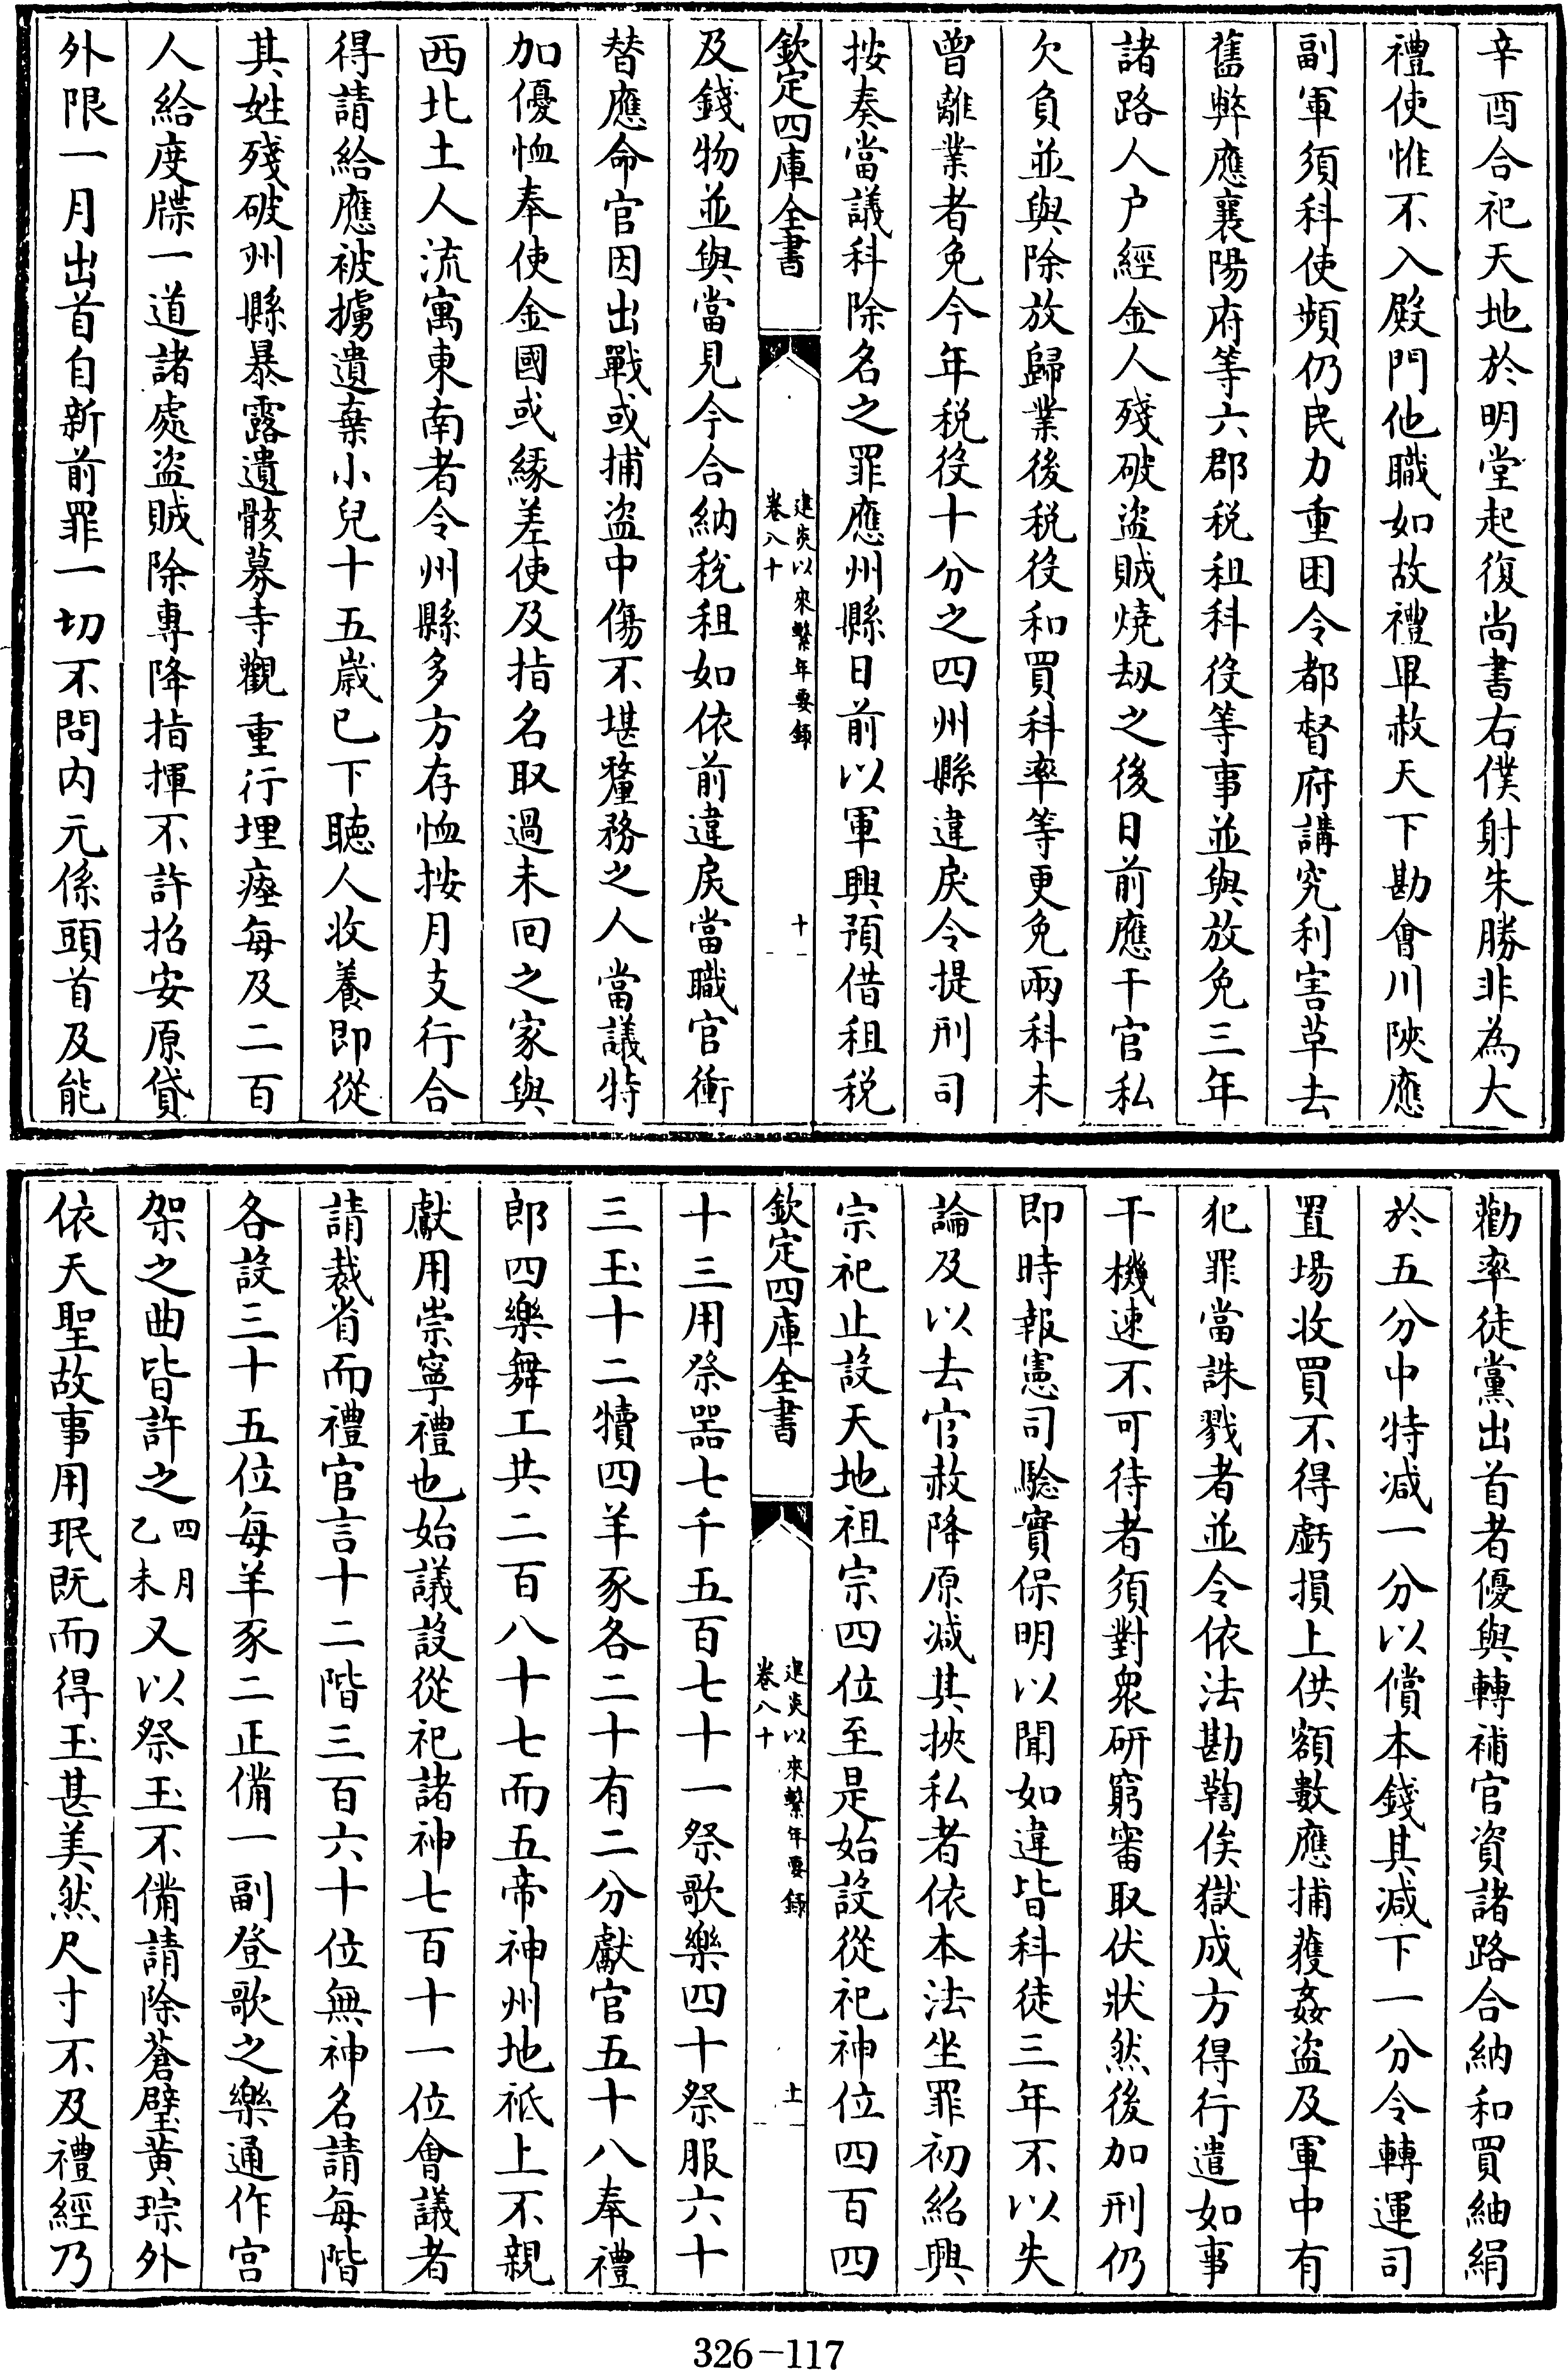 辛酉合祀天地於明堂起復尚書右僕射朱勝非為大
禮使惟不入殿門他職如故禮畢赦天下勘會川陜應
副軍須科使頻仍民力重困令都督府講究利害草去
舊弊應襄陽府等六郡税租科役等事並與放免三年
諸路人户經金人殘破盗賊燒刼之後日前應干官私
欠負並與除放歸業後税役和買科率等更免兩科未
曾離業者免今年税役十分之四州縣違戾令提刑司
按奏當議科除名之罪應州縣日前以軍興預借租税
欽定四庫全書
建炎以來繫年要錄
卷八十
十
及錢物並與當見今合納税租如依前違戾當職官衝
替應命官因出戰或捕盗中傷不堪釐務之人當議特
加優恤奉使金國或緣差使及指名取過未回之家與
西北土人流寓東南者令州縣多方存恤按月支行合
得請給應被擄遺棄小兒十五歲已下聽人收養即從
其姓殘破州縣暴露遺骸募寺觀重行埋瘞每及二百
人給度牒一道諸處盗賊除專降指揮不許招安原貸
外限一月出首自新前罪一切不問内元係頭首及能
勸率徒黨出首者優與轉補官資諸路合納和買紬絹
於五分中特减一分以償本錢其减下一分令轉運司
置場收買不得虧損上供額數應捕獲姦盗及軍中有
犯罪當誅戮者並令依法勘鞫俟獄成方得行遣如事
干機速不可待者須對衆研窮審取伏狀然後加刑仍
即時報憲司驗實保明以聞如違皆科徒三年不以失
論及以去官赦降原减其挾私者依本法坐罪初紹興
宗祀止設天地祖宗四位至是始設從祀神位四百四
欽定四庫全書
建炎以來繫年要錄
卷八十
十一
十三用祭器七千五百七十一祭歌樂四十祭服六十
三玉十二犢四羊豕各二十有二分獻官五十八奉禮
郎四樂舞工共二百八十七而五帝神州地祇上不親
獻用崇寧禮也始議設從祀諸神七百十一位會議者
請裁省而禮官言十二階三百六十位無神名請每階
各設三十五位每羊豕二正備一副登歌之樂通作宫
架之曲皆許之四月乙未又以祭玉不備請除蒼璧黄琮外
依天聖故事用珉既而得玉甚美然尺寸不及禮經乃
326-117